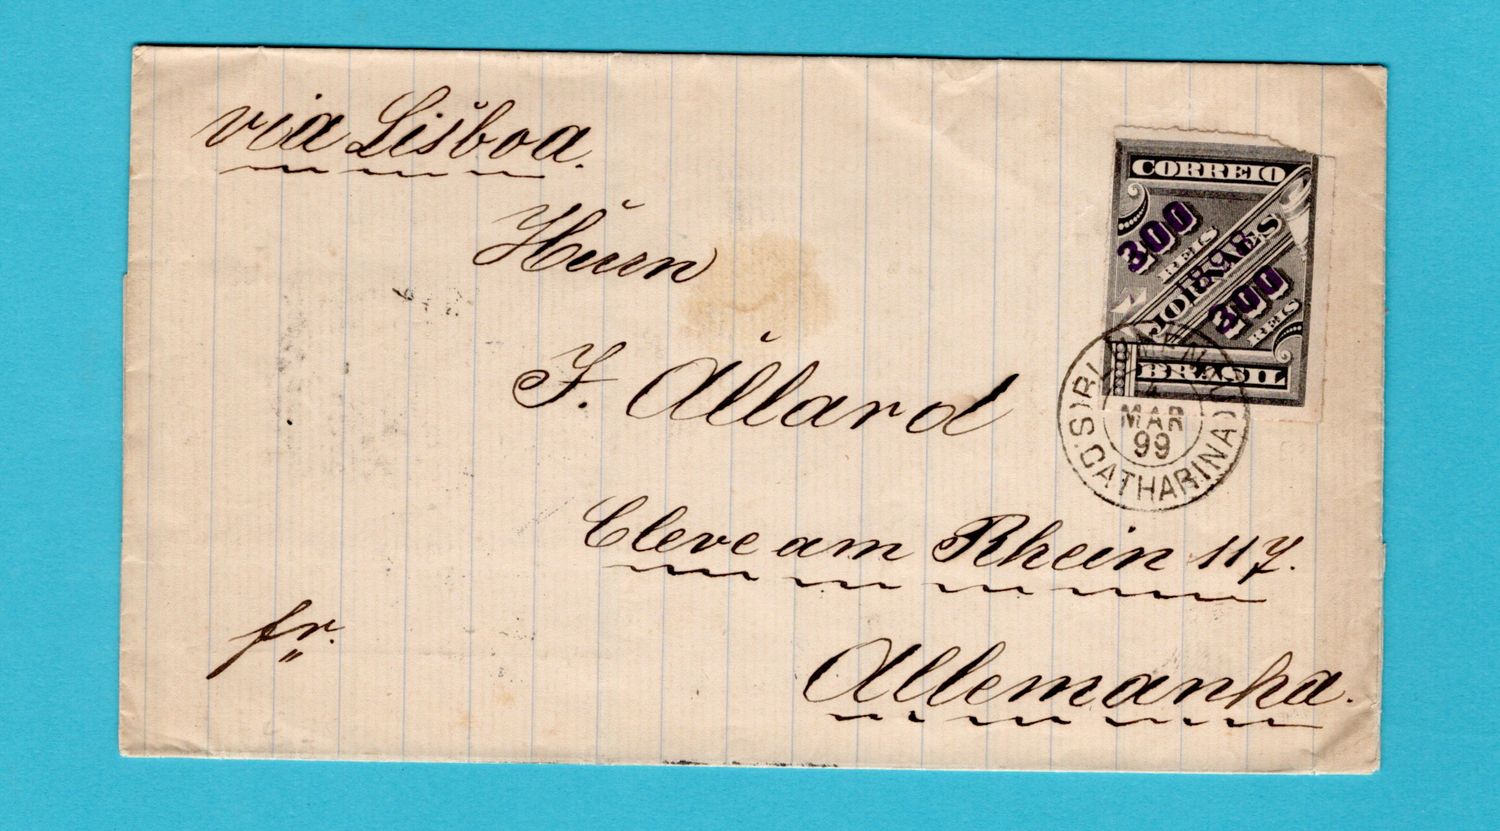 via Lisboa.
Herrn
F. Allard
Cleve am Rhein 117.
Allemanha.
fr.
CORREIO
300
REIS
JORNAES
300
REIS
BRASIL
MAR
99
(S. CATHARINA)